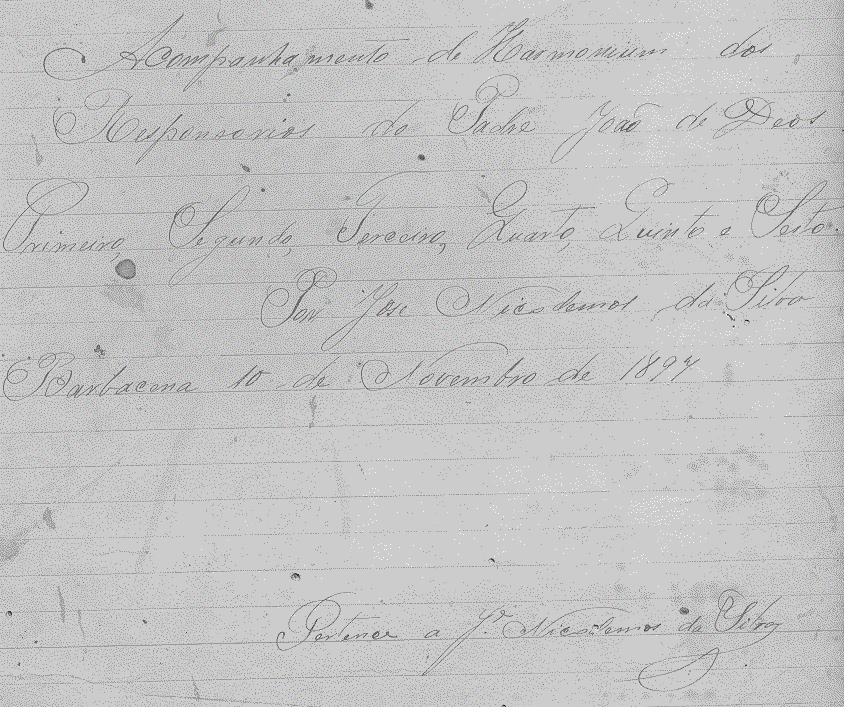 Acompanhamento de Harmonium dos
Responsorios do Padre João de Deos
Primeiro, Segundo, Terceiro, Quarto, Quinto e Sesto.
Por Jose Nicodemos da Silva
Barbacena 10 de Novembro de 1897
Pertence a Je. Nicodemos da Silva